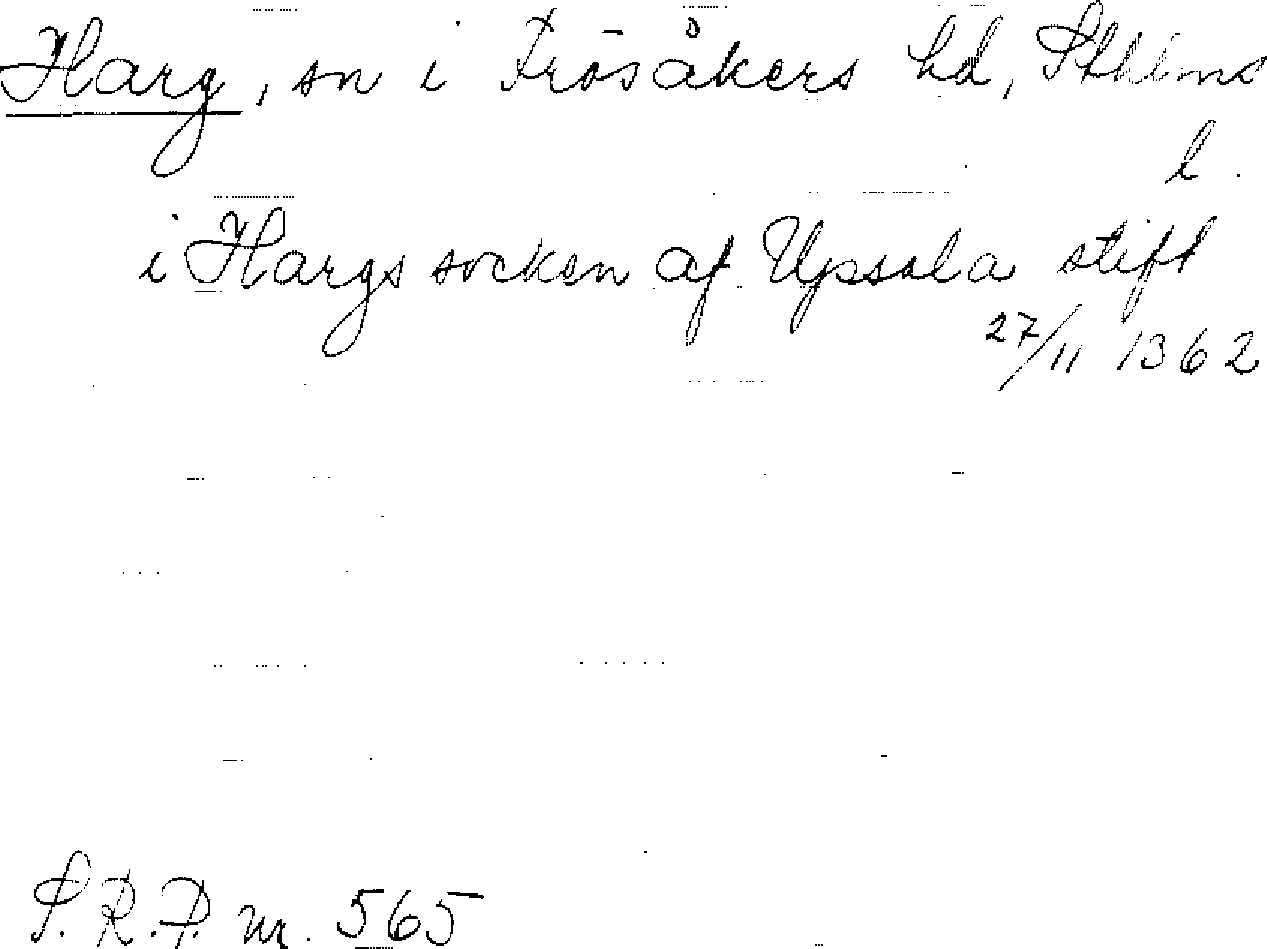 Harg, sn i Frösåkers hd, Sthlms
l.
i Hargs socken af Upsala stift
27/11 1362
S.R.P. nr. 565